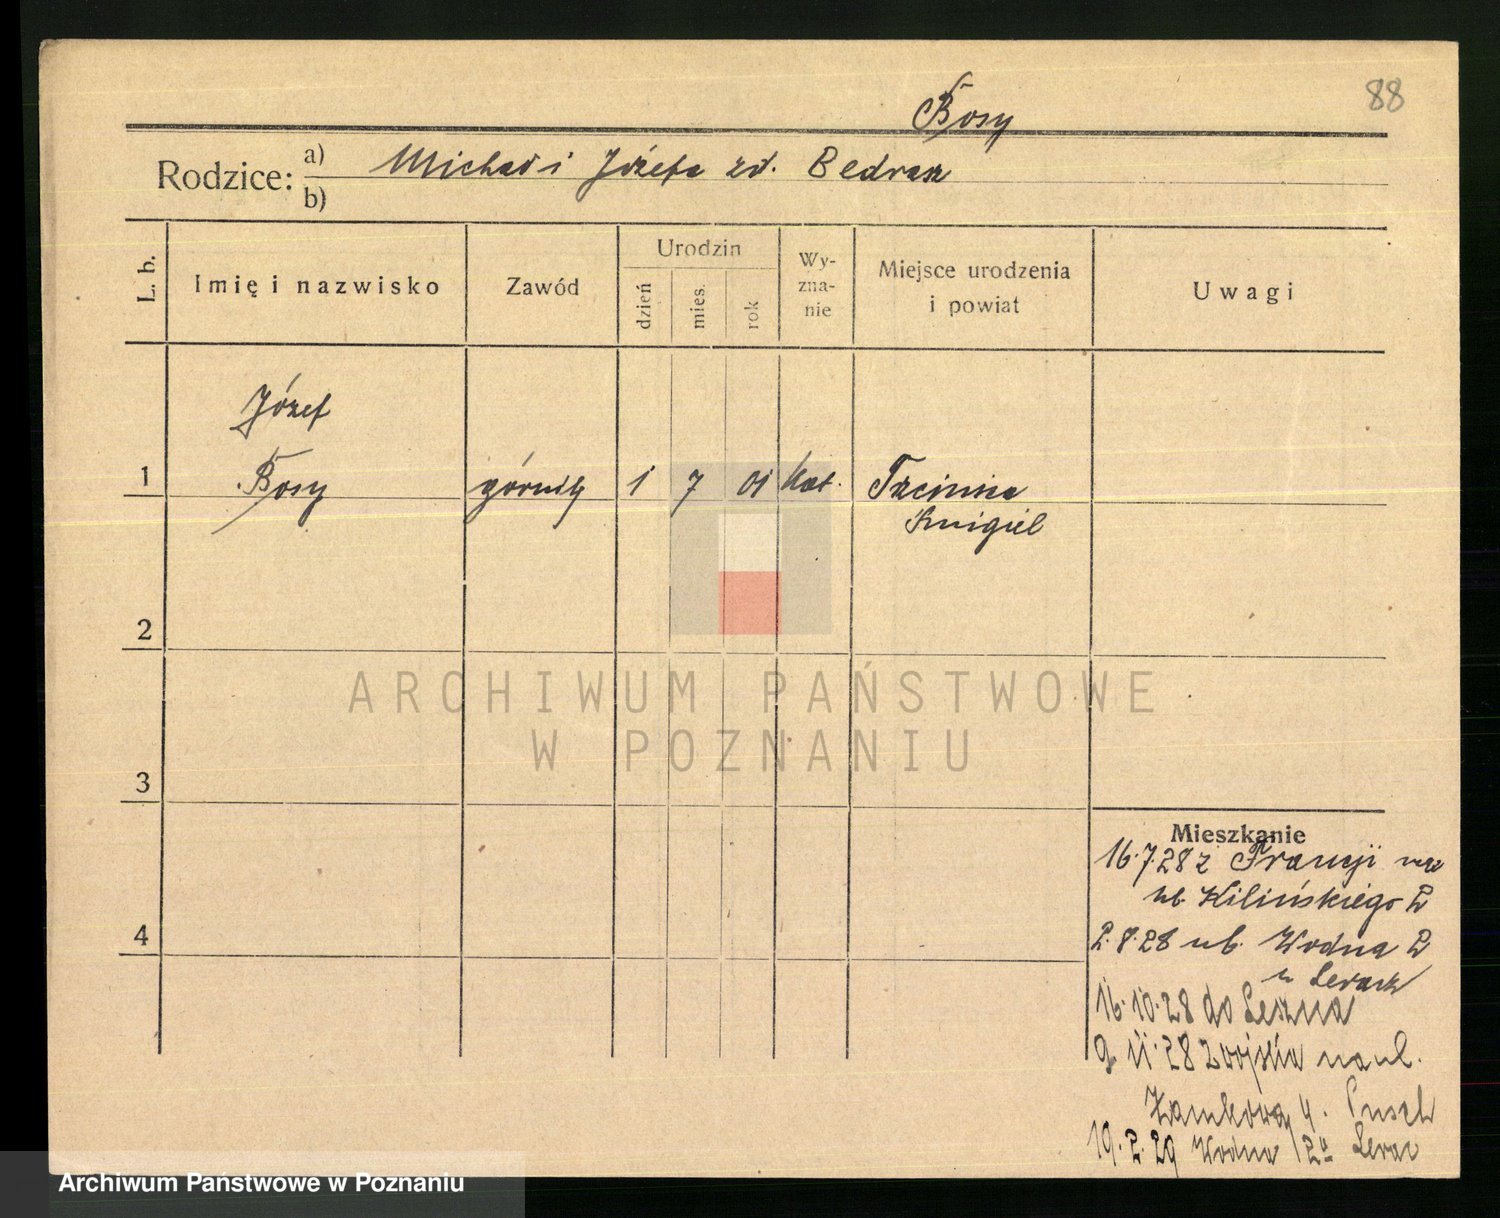 88
Bosy
Rodzice: a) Michał i Józefa zd. Bedrasz
b)
L. b.
Imię i nazwisko
Zawód
Urodzin
dzień
mies.
rok
Wy-
zna-
nie
Miejsce urodzenia
i powiat
Uwagi
Józef
1 Bosy górnik 1 7 01 kat. Trcinica
Śmigiel
2
3
4
ARCHIWUM PAŃSTWOWE
W POZNANIU
Mieszkanie
16.7.28 z Francji na
ul. Kilińskiego 2
2.8.28 ul. Wodna 2
u
16.10.28 do Leszna
9 11.28 z wojska na ul.
Zamkowa 4. Pusch
19.2.29 Wodna 2a
Archiwum Państwowe w Poznaniu